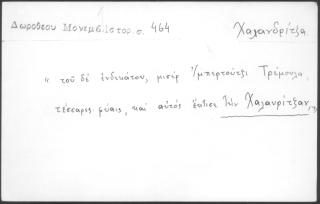 Δωροθέου Μονεμβ. Ιστορ. σ. 464
Χαλανδρίτζα
« τοῦ δὲ ἑνδεκάτου, μισὲρ Ῥμπερτούτζι Τρέμουλα,
τέσσαρις φύαις, καὶ αὐτὸς ἔκτισε τὴν Χαλανρίτζαν,